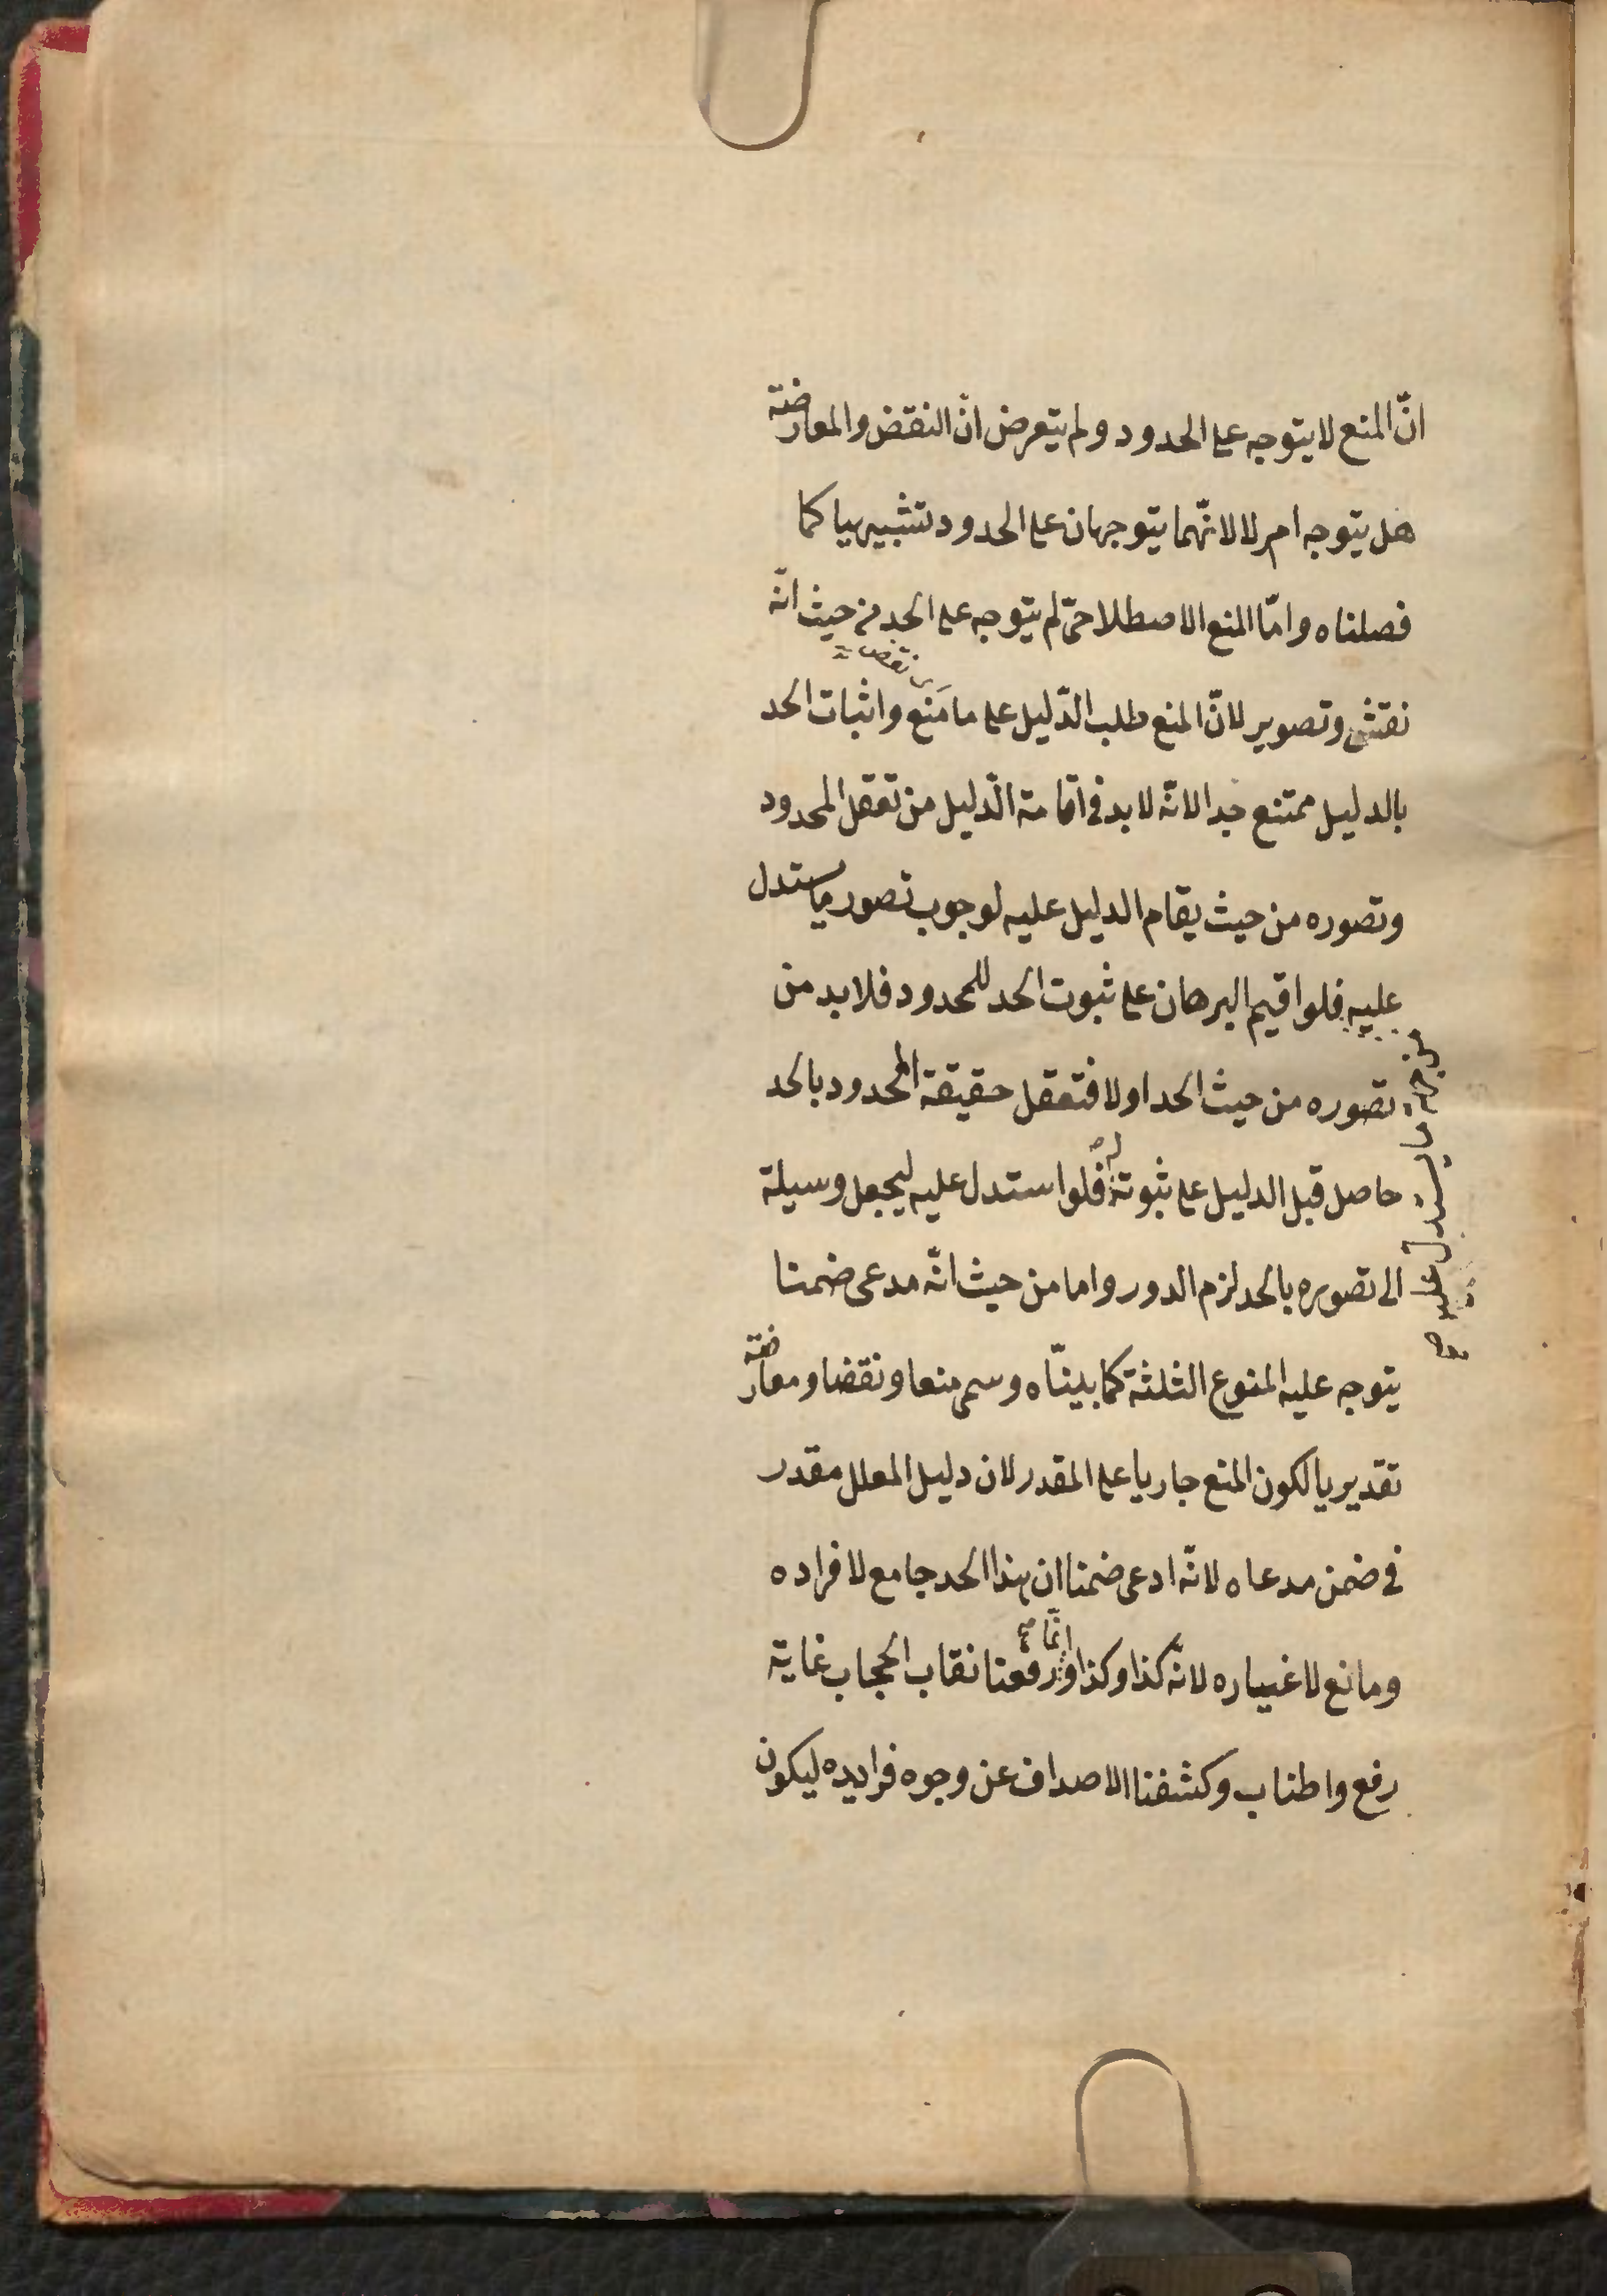 انّ المنع لا يتوجه على الحدود ولم يتعرض انّ النقض والمعارضة
هل يتوجه ام لا لانّهما يتوجهان على الحدود تشبيهيا كما
فصلناه وامّا المنع الاصطلاحىّ لم يتوجه على الحد من حيث انّه
نقش وتصوير لانّ المنع طلب الدّليل على ما مَنع واثبات الحد
بالدليل ممتنع جدا لانّه لا بد فى اقامة الدّليل من تعقل المحدود
وتصوره من حيث يقام الدليل عليه لوجوب تصور ما يستدل
عليه فلو اقيم البرهان على ثبوت الحد للمحدود فلا بد من
من جهة ما يستدل عليه صح
تصوره من حيث الحد اولا فتعقل حقيقة المحدود بالحد
حاصل قبل الدليل على ثبوته له فلو استدل عليه ليجعل وسيلة
الى تصوره بالحد لزم الدور واما من حيث انّه مدعى ضمنا
يتوجه عليه المنوع الثلثة كما بينّاه وسمى منعا ونقضا ومعارضة
تقديريا لكون المنع جاريا على المقدر لان دليل المعلل مقدر
فى ضمن مدعاه لانّه ادعى ضمنا ان هذا الحد جامع لافراده
ومانع لاغياره لانّه كذا وكذا وانّما رفعنا نقاب الحجاب غاية
رفع واطناب وكشفنا الاصداف عن وجوه فرايده ليكون